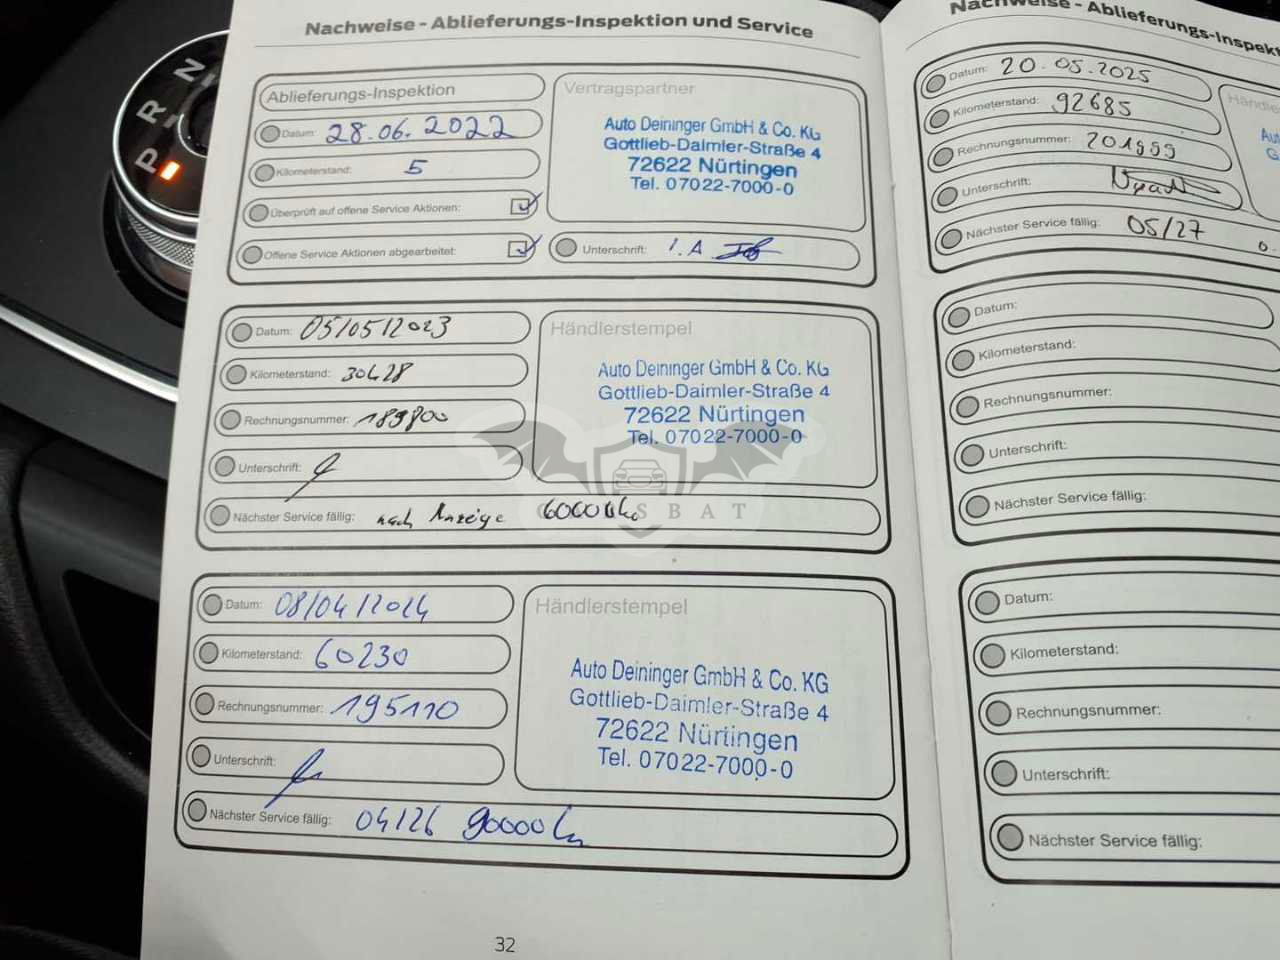 N
R
P
Nachweise - Ablieferungs-Inspektion und Service
Ablieferungs-Inspektion
Datum: 28.06.2022
Kilometerstand: 5
Überprüft auf offene Service Aktionen:
Offene Service Aktionen abgearbeitet:
Vertragspartner
Auto Deininger GmbH & Co. KG
Gottlieb-Daimler-Straße 4
72622 Nürtingen
Tel. 07022-7000-0
Unterschrift: i.A
Datum: 05/05/2023
Kilometerstand: 30428
Rechnungsnummer: 189800
Unterschrift:
Nächster Service fällig: nach Anzeige 60000km
Händlerstempel
Auto Deininger GmbH & Co. KG
Gottlieb-Daimler-Straße 4
72622 Nürtingen
Tel. 07022-7000-0
BAT
Datum: 08/04/2024
Kilometerstand: 60230
Rechnungsnummer: 195110
Unterschrift:
Nächster Service fällig: 04/26 90000km
Händlerstempel
Auto Deininger GmbH & Co. KG
Gottlieb-Daimler-Straße 4
72622 Nürtingen
Tel. 07022-7000-0
32
Nachweise - Ablieferungs-Inspekt
Datum: 20.05.2025
Kilometerstand: 92685
Rechnungsnummer: 201999
Unterschrift:
Nächster Service fällig: 05/27
Datum:
Kilometerstand:
Rechnungsnummer:
Unterschrift:
Nächster Service fällig:
Datum:
Kilometerstand:
Rechnungsnummer:
Unterschrift:
Nächster Service fällig: